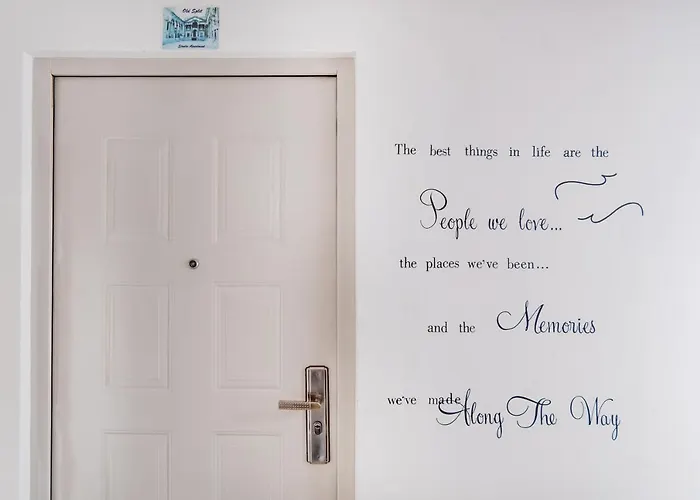 Old Split
Studio Apartment
The best things in life are the
People we love...
the places we've been...
and the Memories
we've made Along The Way